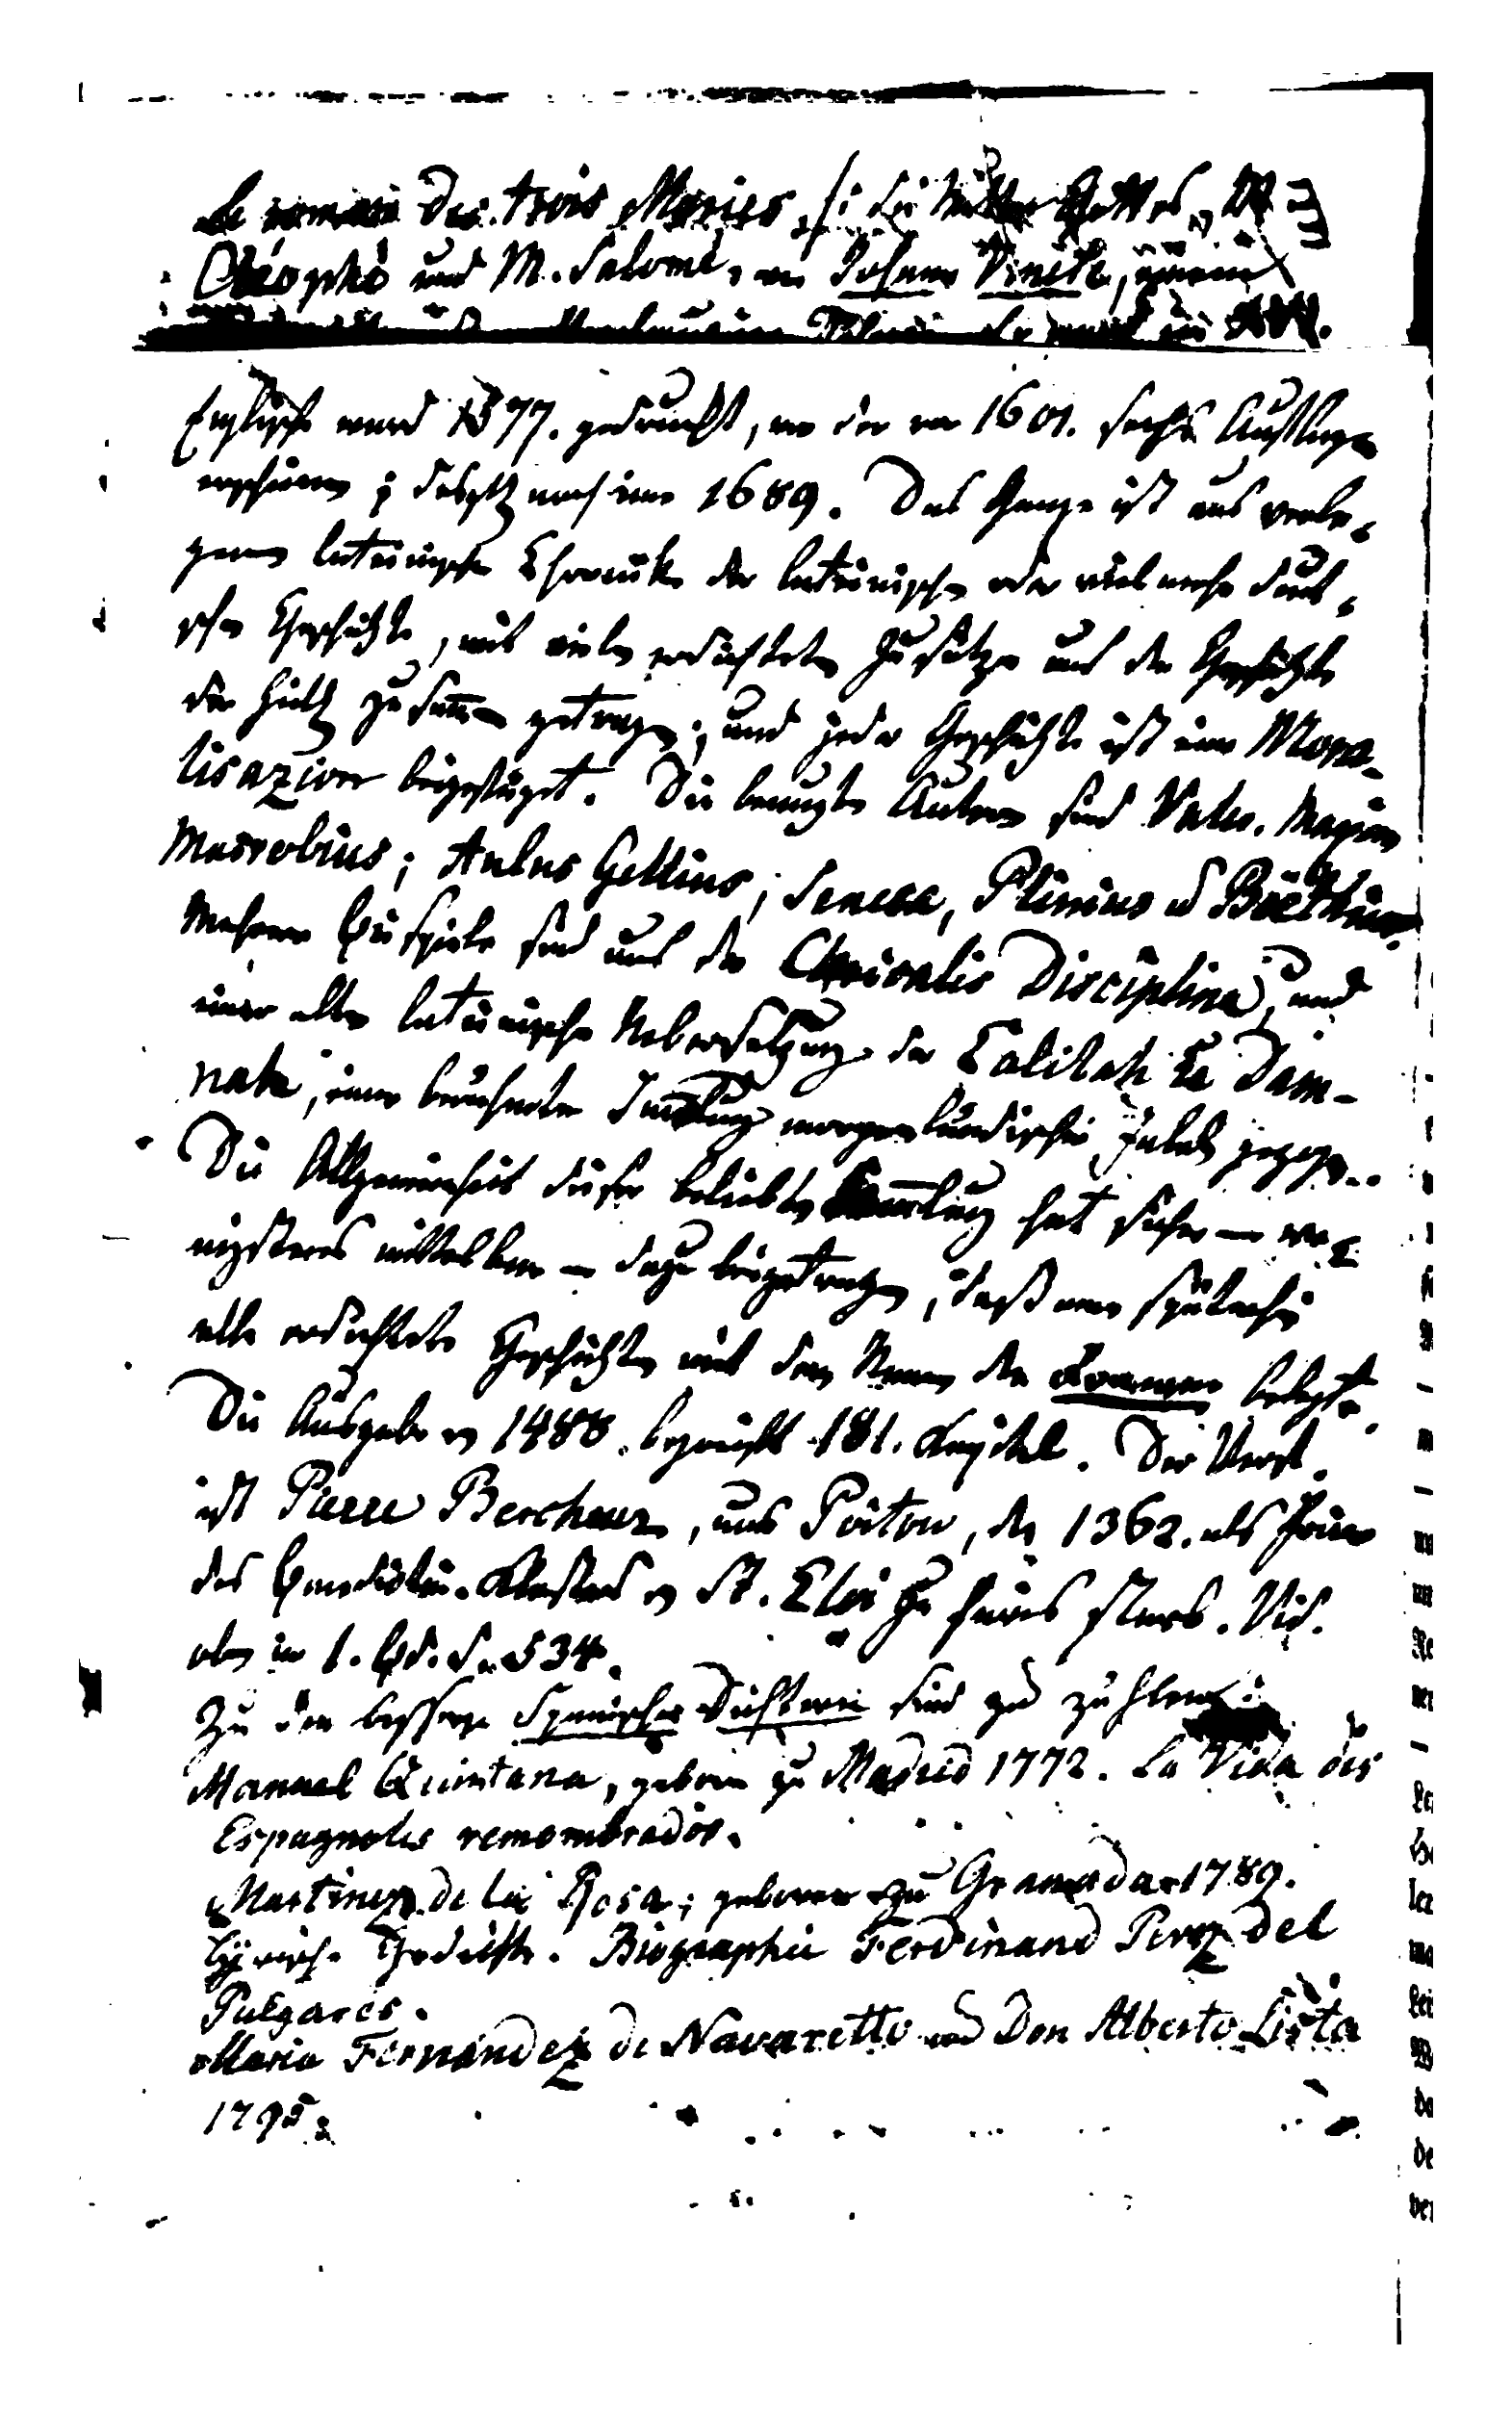 Le roman des trois Maries, die Mutter Gottes, M
Cléophé und M. Salomé, von Johann Vinete, einem
Englische ward 1577. gedruckt, wo der von 1601. sechs Auflagen
erschienen; desgl. noch eine 1689. Das Ganze ist aus verle-
genen lateinischen Chroniken der lateinischen oder vielmehr deut-
schen Geschichte, mit vielen erdichteten Zusätzen aus der Geschichte
der Heilg zusammen getragen; und jeder Geschichte ist eine Mora-
lisazion beigefüget. Die benuzten Autoren sind Valer. Maxim
Macrobius; Aulus Gellius; Seneca, Plinius u Boethius.
Mehrere Beispiele sind aus der Clericalis Disciplina, und
einer alten lateinischen Uebersetzung der Calilah Va Dam-
nah, einer berühmten Samlung morgenländischer Fabeln gezogen.
Die Allgemeinheit dieser beliebten Samlung hat sicher — we-
nigstens mittelbar — dazu beigetragen, daß man späterhin
alle erdichtete Geschichten mit dem Namen der Romanen belegte.
Die Ausgabe v 1488. begreift 181. Kapitel. Der Verf.
ist Pierre Bercheur, aus Poitou, der 1362. als Prior
des Benedictin. Klosters v St. Eloi zu Paris starb. Vid.
oben im 1. Bd. S. 534.
Zu den bessern Spanischen Dichtern sind zu zählen:
Manuel Quintana, geboren zu Madrid 1772. La Vida des
Espagnoles remembrados.
Martinez de la Rosa; geboren zu Granada 1789.
Lyrische Gedichte. Biographie Ferdinand Perez del
Pulgares.
Maria Fernandez de Navarette und Don Alberto Lista
1795.